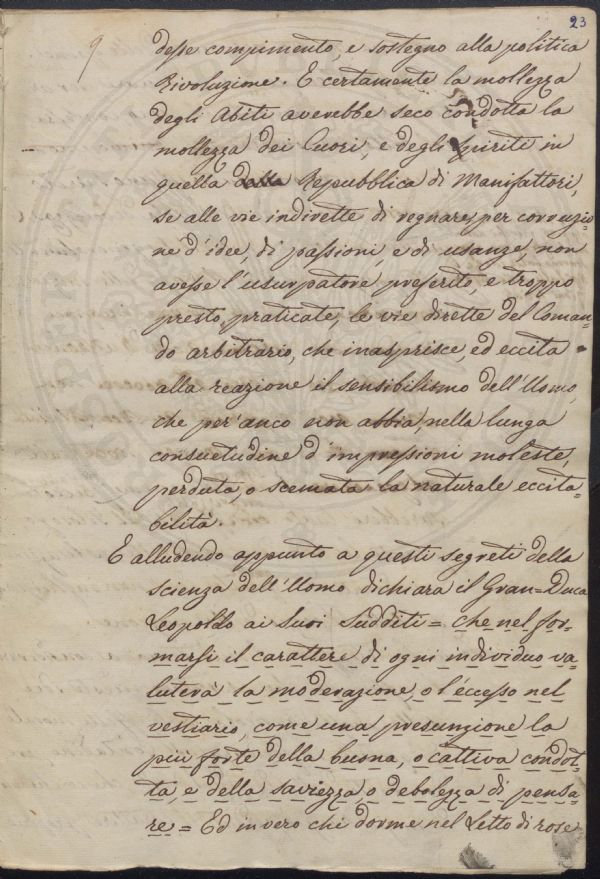 23
9
desse compimento, e sostegno alla politica
Rivoluzione. E certamente la mollezza
degli Abiti averebbe seco condotta la
mollezza dei Cuori, e degli spiriti in
quella Repubblica di Manifattori,
se alle vie indirette di regnare, per corruzio=
ne d'idee, di passioni, e di usanze, non
avesse l'usurpatore preferito, e troppo
presto, praticate, le vie dirette del Coman=
do arbitrario, che inasprisce ed eccita
alla reazione il sensibilismo dell'Uomo,
che per'anco non abbia, nella lunga
consuetudine d'impressioni moleste,
perduta, o scemata la naturale eccita=
bilità.
E alludendo appunto a questi segreti della
scienza dell'Uomo dichiara il Gran=Duca
Leopoldo ai Suoi Sudditi = che nel for=
marsi il carattere di ogni individuo va=
luterà la moderazione, o l'eccesso nel
vestiario, come una presunzione la
più forte della buona, o cattiva condot=
ta, e della saviezza, o debolezza di pensa=
re = Ed in vero chi dorme nel Letto di rose